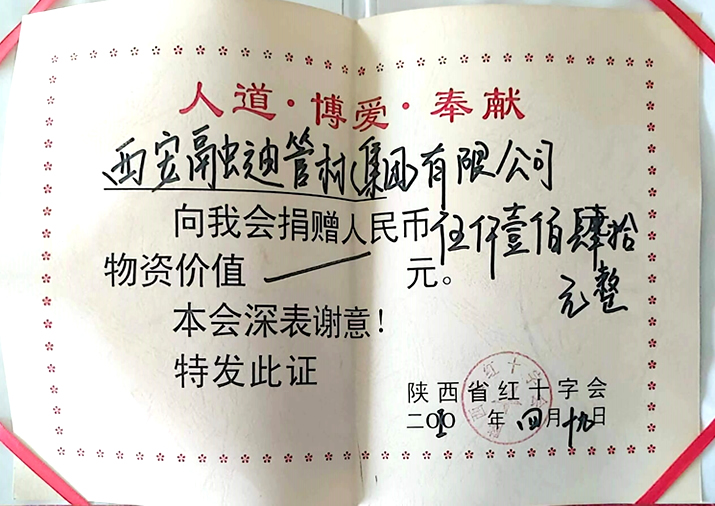 人道·博爱·奉献
西安融迪管材(集团)有限公司
向我会捐赠人民币伍仟壹佰肆拾
元整
物资价值 元。
本会深表谢意!
特发此证
陕西省红十字会
二010年四月十九日